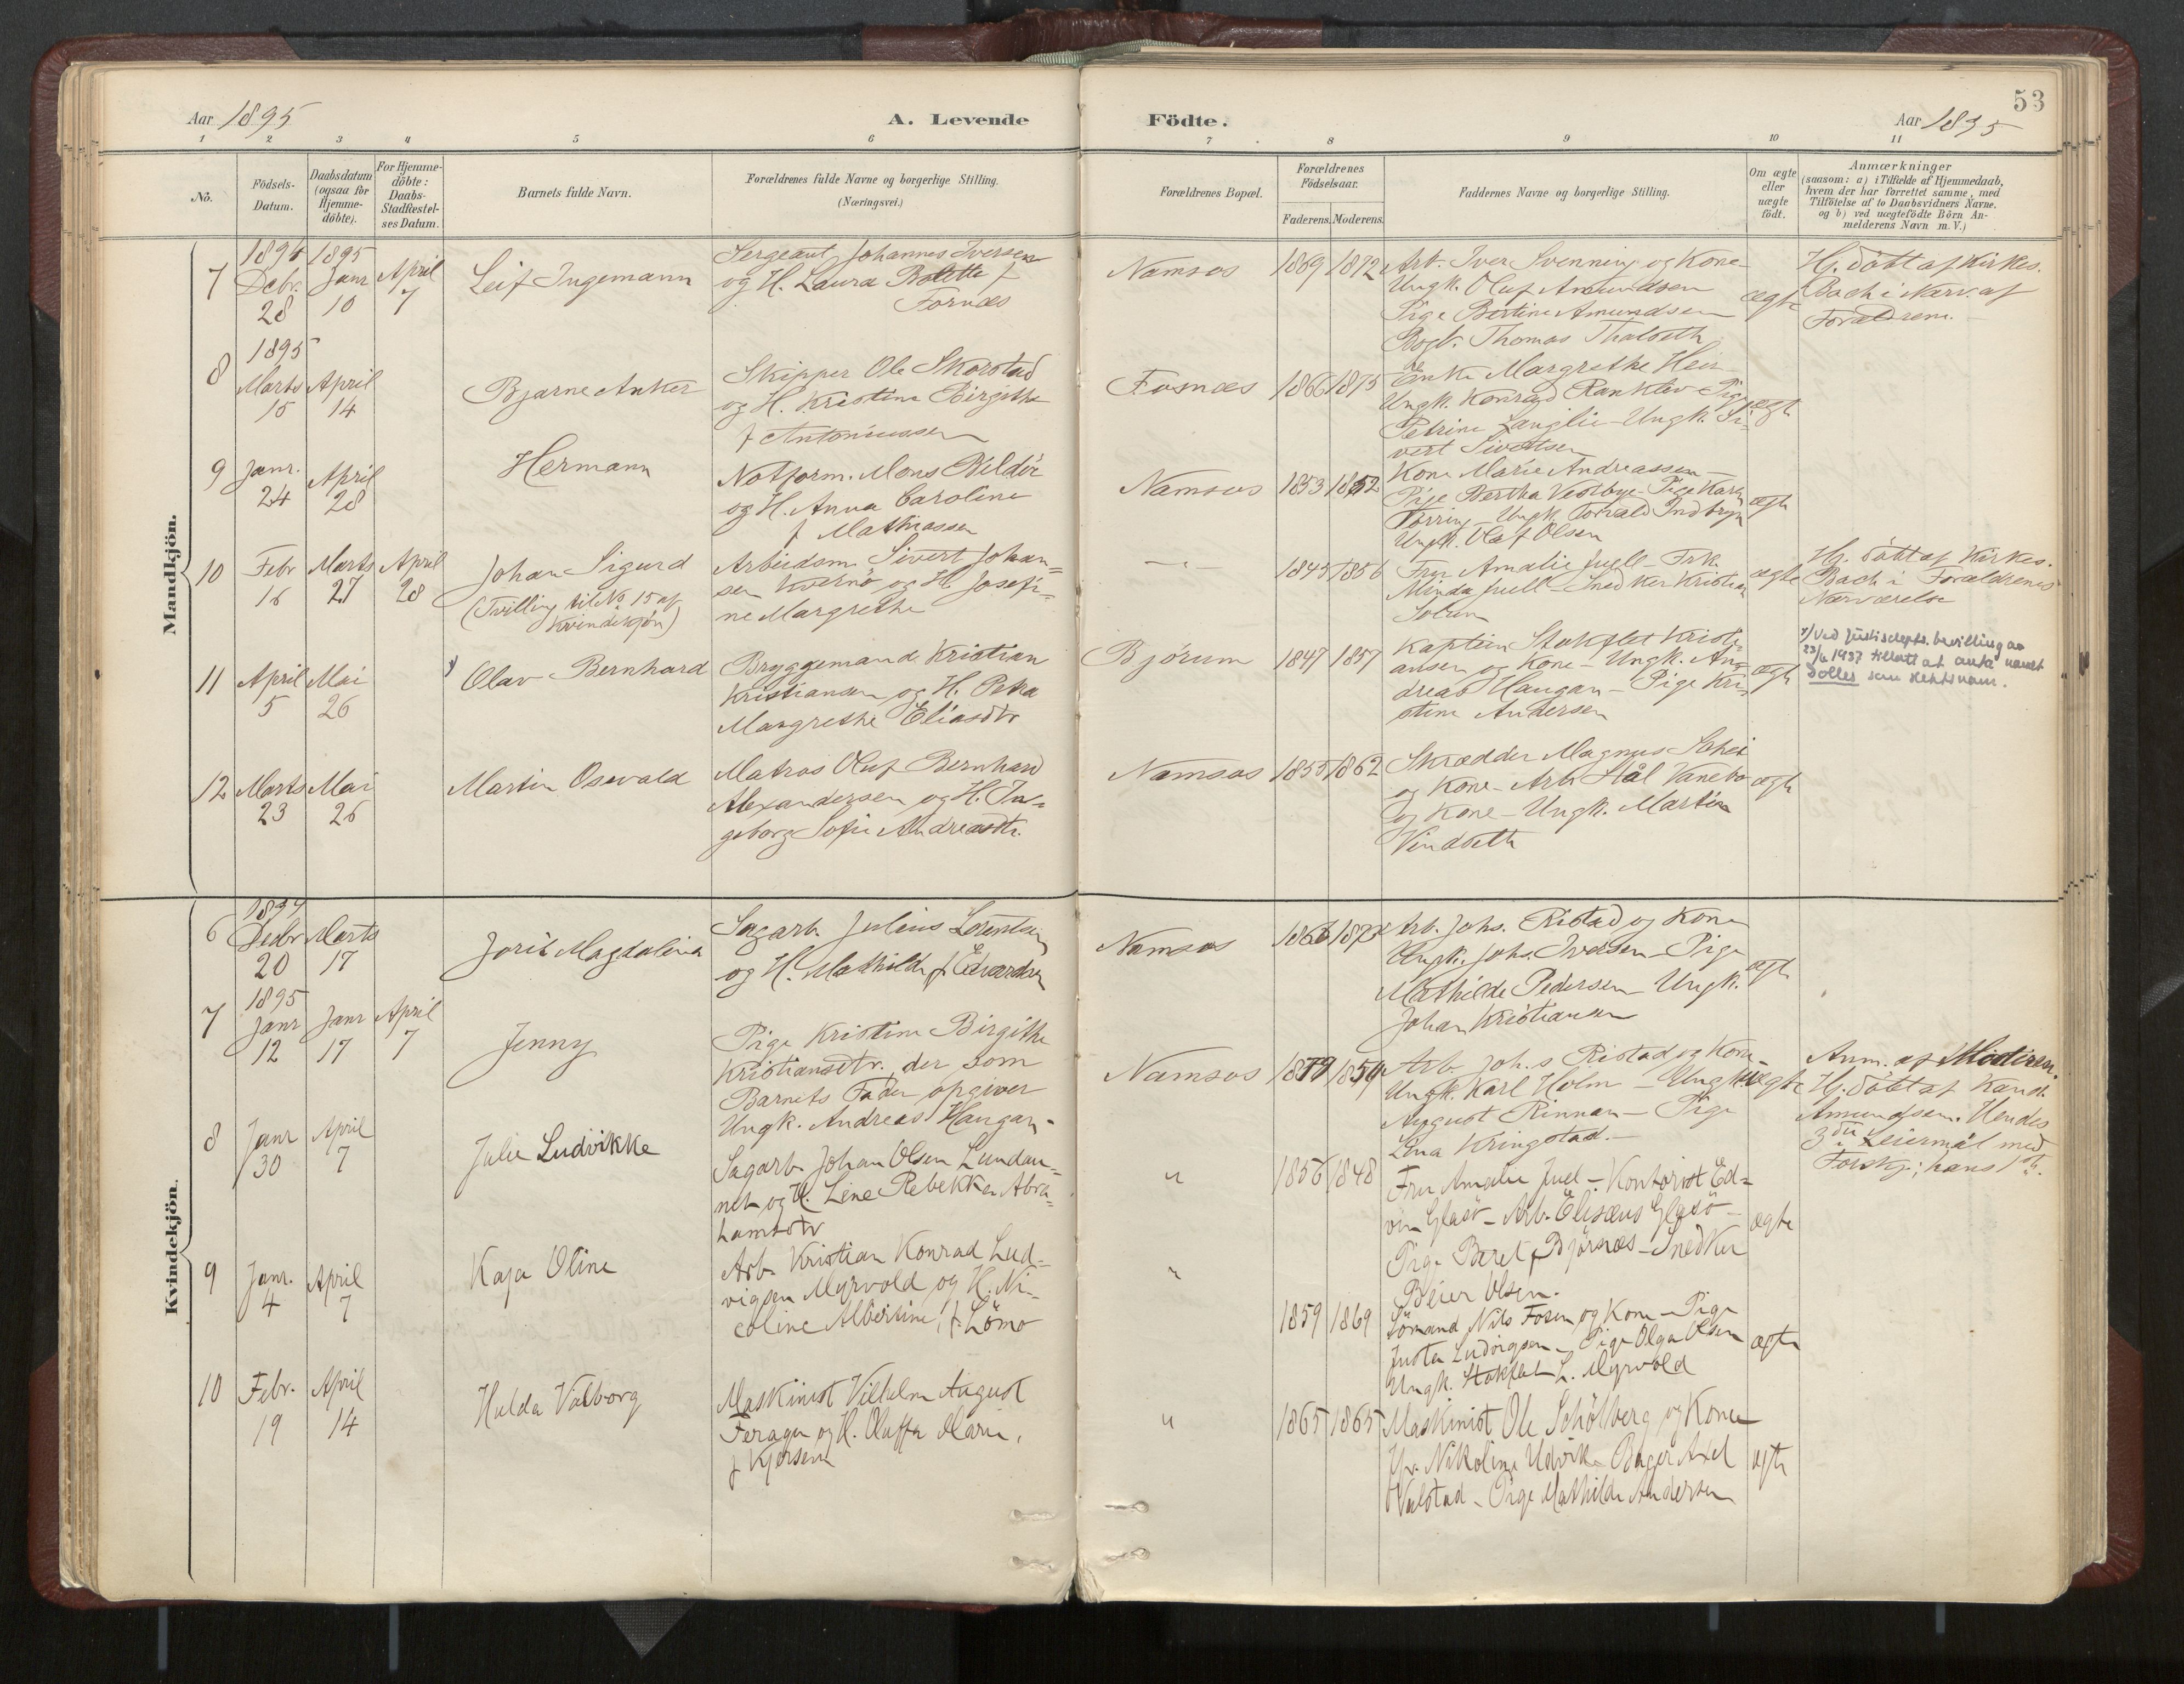 53
Aar 1895
A. Levende
Födte.
Aar 1895
1 2 3 4 5 6 7 8 9 10 11
No.
Födsels-
Datum.
Daabsdatum
(ogsaa for
Hjemme-
döbte).
For Hjemme-
döbte:
Daabs-
Stadfæstel-
ses Datum.
Barnets fulde Navn.
Forældrenes fulde Navne og borgerlige Stilling.
(Næringsvei.)
Forældrenes Bopæl.
Forældrenes
Födselsaar.
Faderens. Moderens.
Faddernes Navne og borgerlige Stilling.
Om ægte
eller
uægte
födt.
Anmærkninger
(saasom: a) i Tilfælde af Hjemmedaab,
hvem der har forrettet samme, med
Tilföielse af to Daabsvidners Navne,
og b) ved uægtefödte Börn An-
melderens Navn m. V.)
Mandkjön.
7
1894
Debr.
28
1895
Janr
10
April
7
Leif Ingemann
Sergeant Johannes Iversen
og H. Laura Bolette f
Fornæs
Namsos
1869 1872
Arb. Iver Svenning og Kone
Ungk. Oluf Amundsen
Pige Bertine Amundsen
Bogb. Thomas Thalseth
ægte
Hj. döbt af Kirkes.
Bach i Nærv. af
Forældrene.
8
1895
Marts
15
April
14
Bjarne Anker
Skipper Ole Skorstad
og H. Kristine Birgitte
f Antoniussen
Fosnæs
1866 1875
Enke Margrethe Hein
Ungk. Konrad Ranklev Pige
Petrine Langlie - Ungk. Si-
vert Sivertsen
ægte
9
Janr.
24
April
28
Hermann
Notform. Mons Bildöe
og H. Anna Caroline
f Mathiassen
Namsos
1853 1852
Kone Marie Andreassen -
Pige Bertha Vestbye - Pige Karen
Törring - Ungk. Torvald Indbryn
Ungk. Olaf Olsen
ægte
10
Febr
16
Marts
27
April
28
Johan Sigurd
(Tvilling til No 15 af
Kvindekjön)
Arbeidsm. Sivert Johan-
sen Kvernö og H. Josefi-
ne Margrethe
- " -
1845 1856
Fru Amalie Juell - Frk.
Minda Juell - Snedker Kristian
Solem
ægte
Hj. döbt af Kirkes.
Bach i Forældrenes
Nærværelse
11
April
5
Mai
26
Olav Bernhard
Bryggemand Kristian
Kristiansen og H. Petra
Margrethe Eliasdtr
Bjørum
1847 1857
Kaptein Stokflet Kristi-
ansen og Kone - Ungk. An-
dreas Haugan - Pige Kri-
stine Andersen
ægte
Ved Justisdepts. bevilling av
23/6 1937 tillatt at anta navnet
Solles som slektsnavn.
12
Marts
23
Mai
26
Martin Osevald
Matros Oluf Bernhard
Alexandersen og H. In-
geborg Sofie Andreasdtr.
Namsos
1855 1862
Skrædder Magnus Schei
og Kone - Arb. Stål Vanebo
og Kone - Ungk. Martin
Vindseth
ægte
Kvindekjön.
6
1894
Decbr
20
Marts
17
Jorid Magdalena
Sagarb. Julius Lorentsen
og H. Mathilde f Edvardsen
Namsos
1866
Arb. Johs. Ristad og Kone
Ungk. Johs. Iversen - Pige
Mathilde Pedersen - Ungk.
Johan Kristiansen
ægte
7
1895
Janr
12
Janr
17
April
7
Jenny
Pige Kristine Birgitte
Kristiansdtr. der som
Barnets Fader opgiver
Ungk. Andreas Haugan.
Namsos
Arb. Joh.s Ristad og Kone -
Ungk. Karl Holm - Ungk.
August Rinnan - Pige
Lina Kringstad. -
uægte
Anm. af Moderen.
Hj. döbt af Kand.
Amundsen. Hendes
3die Leiermål med
Forskj; hans 1ste.
8
Janr
30
April
7
Julie Ludvikke
Sagarb. Johan Olsen Lundan-
net og H. Line Rebekka Abra-
hamsdtr
"
1856 1848
Fru Amalie Juel - Kontorist Ed-
vin Glasö - Arb. Elisæus Glasö -
Pige Beret Björnæs - Snedker
Peier Olsen.
ægte
9
Janr.
4
April
7
Kaja Oline
Arb. Kristian Konrad Lud-
vigsen Myrvold og H. Ni-
coline Albertine f. Lömo
"
1859 1869
Sömand Nils Fosen og Kone - Pige
Justa Ludvigsen - Pige Olga Olsen
Ungk. Stokflet L. Myrvold
ægte
10
Febr.
19
April
14
Hulda Valborg
Maskinist Vilhelm August
Feragen og H. Oluffa Marie,
f Kjersem
"
1865 1865
Maskinist Ole Schölberg og Kone
Nikoline Udvik - Bager Axel
Valstad - Pige Mathilde Andersen
ægte